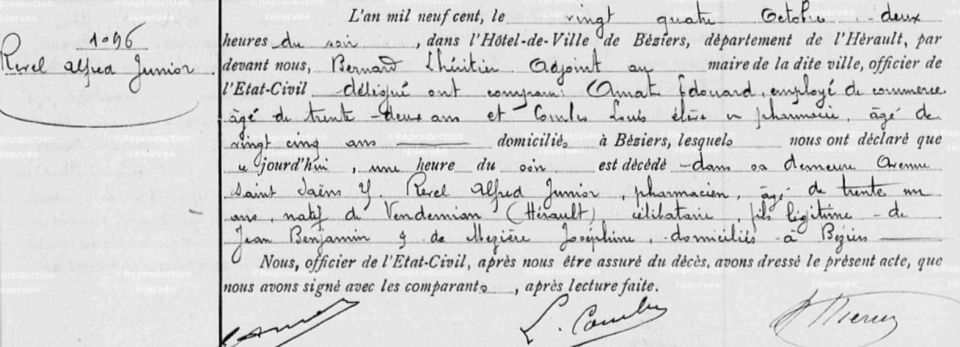 1096
Revel Alfred Junior
L'an mil neuf cent, le vingt quatre Octobre - deux
heures du soir, dans l'Hôtel-de-Ville de Béziers, département de l'Hérault, par
devant nous, Bernard Lhéritier Adjoint au maire de la dite ville, officier de
l'Etat-Civil délégué ont comparu: Amat Edouard, employé de commerce
âgé de trente-deux ans et Combes Louis élève en pharmacie, âgé de
vingt cinq ans domiciliés à Béziers, lesquels nous ont déclaré que
aujourd'hui, une heure du soir est décédé dans sa demeure Avenue
Saint Saëns Revel Alfred Junior, pharmacien, âgé de trente un
ans, natif de Vendemian (Hérault) célibataire, fils légitime de
Jean Benjamin & de Mezière Joséphine, domiciliés à Béziers
Nous, officier de l'Etat-Civil, après nous être assuré du décès, avons dressé le présent acte, que
nous avons signé avec les comparants, après lecture faite.
L. Combes